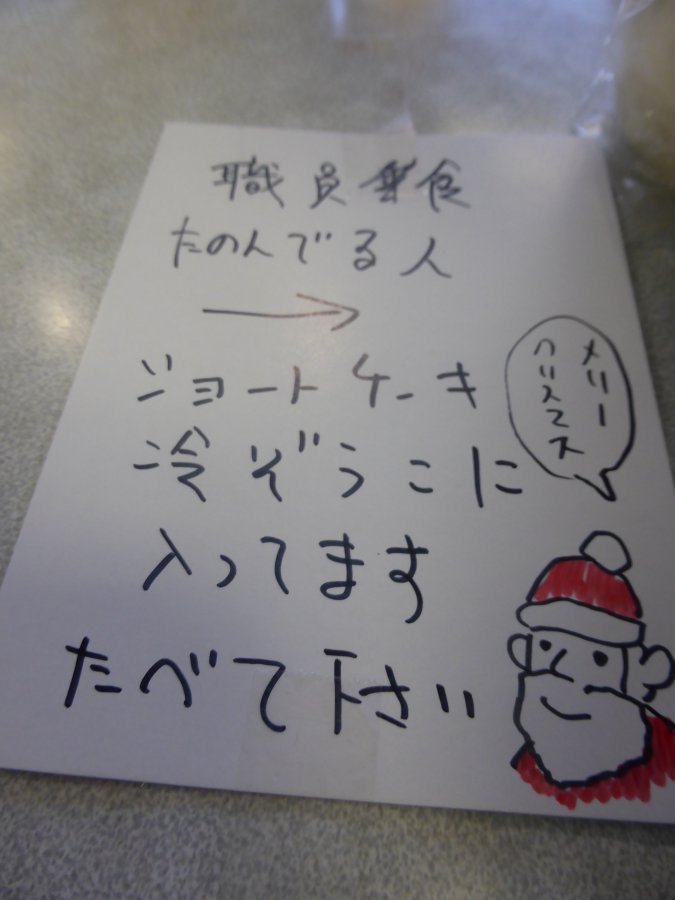 職員食
たのんでる人
→
ショートケーキ
冷ぞうこに
入ってます
たべて下さい
メリー
クリスマス